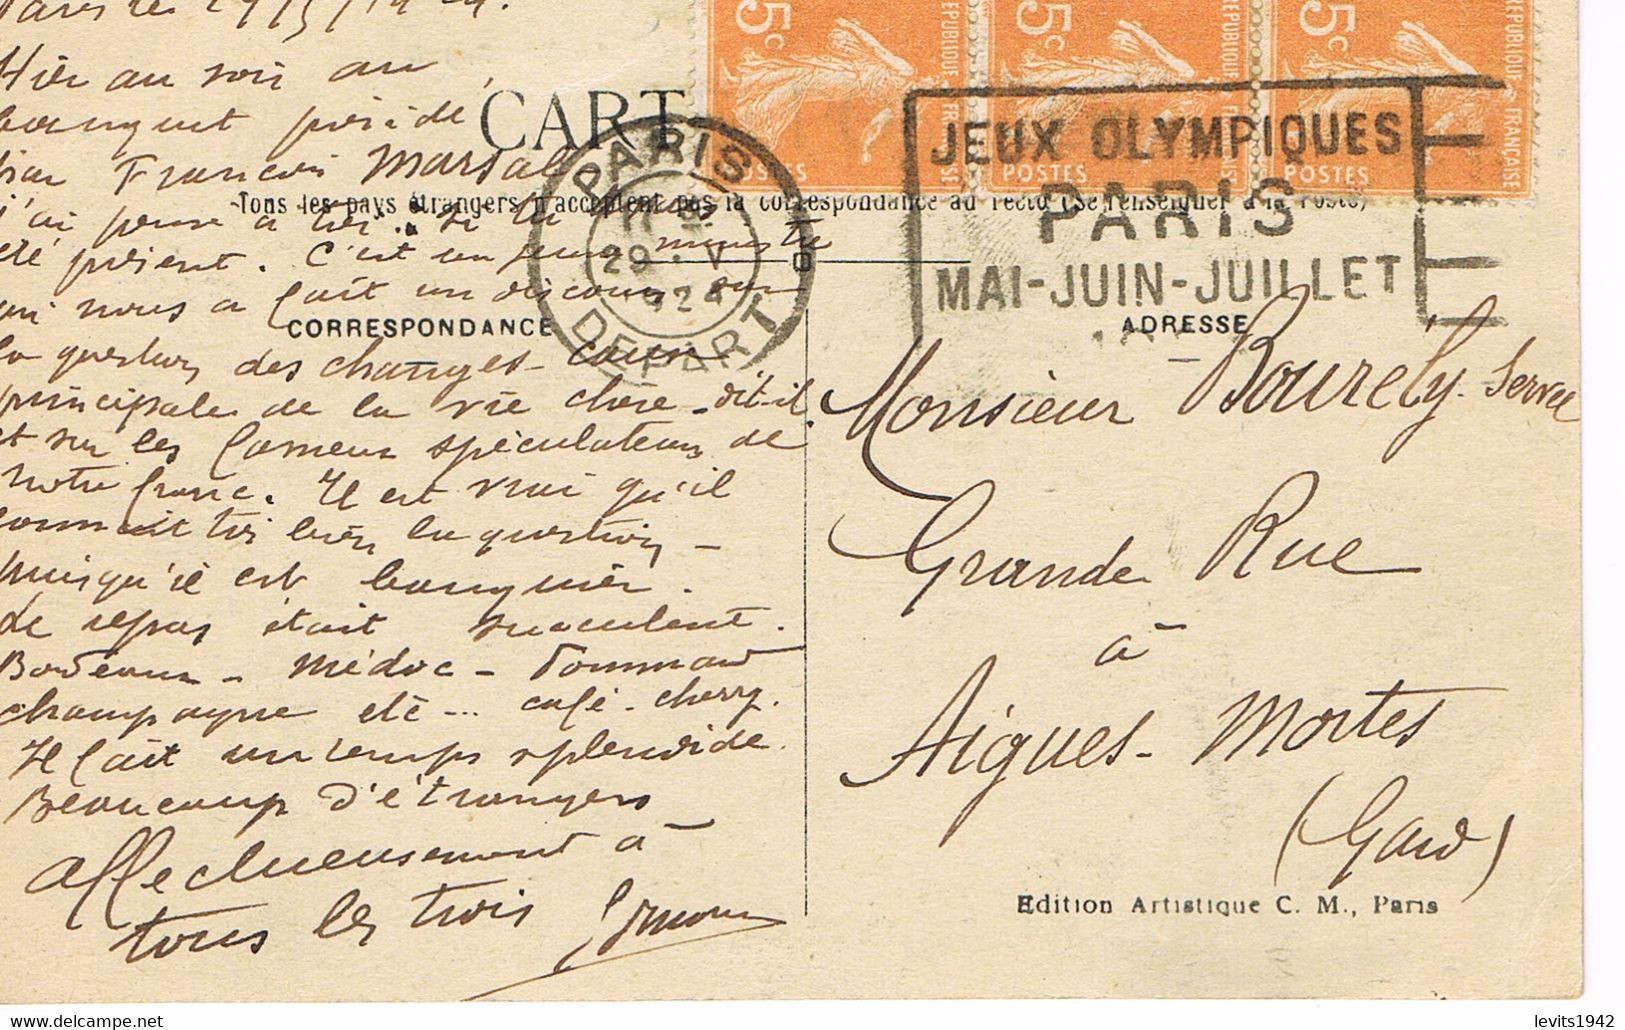 Paris le 29/5/1924.
Hier au soir au
banquet présidé
par François Marsal
j'ai pensé à toi. Si tu avais
été présent. C'est un jeune ministre
qui nous a fait un discours sur
la question des changes - cause
principale de la vie chère - dit-il.
et sur les fameux spéculateurs de
notre franc. Il est vrai qu'il
connait très bien la question -
puisqu'il est banquier.
Le repas était succulent.
Bordeaux - Médoc - Pommard
champagne etc... café - cherry.
Il fait un temps splendide.
Beaucoup d'étrangers
Affectueusement à
tous les trois
CART
Tous les pays étrangers n'acceptent pas la correspondance au recto (se renseigner à la Poste)
CORRESPONDANCE
ADRESSE
5c
5c
5c
REPUBLIQUE FRANÇAISE
REPUBLIQUE FRANÇAISE
REPUBLIQUE FRANÇAISE
POSTES
POSTES
POSTES
PARIS
29 · V
924
DEPART
JEUX OLYMPIQUES
PARIS
MAI-JUIN-JUILLET
Monsieur Bourély.
Grande Rue
à
Aigues-Mortes
(Gard)
Edition Artistique C. M., Paris
levits1942